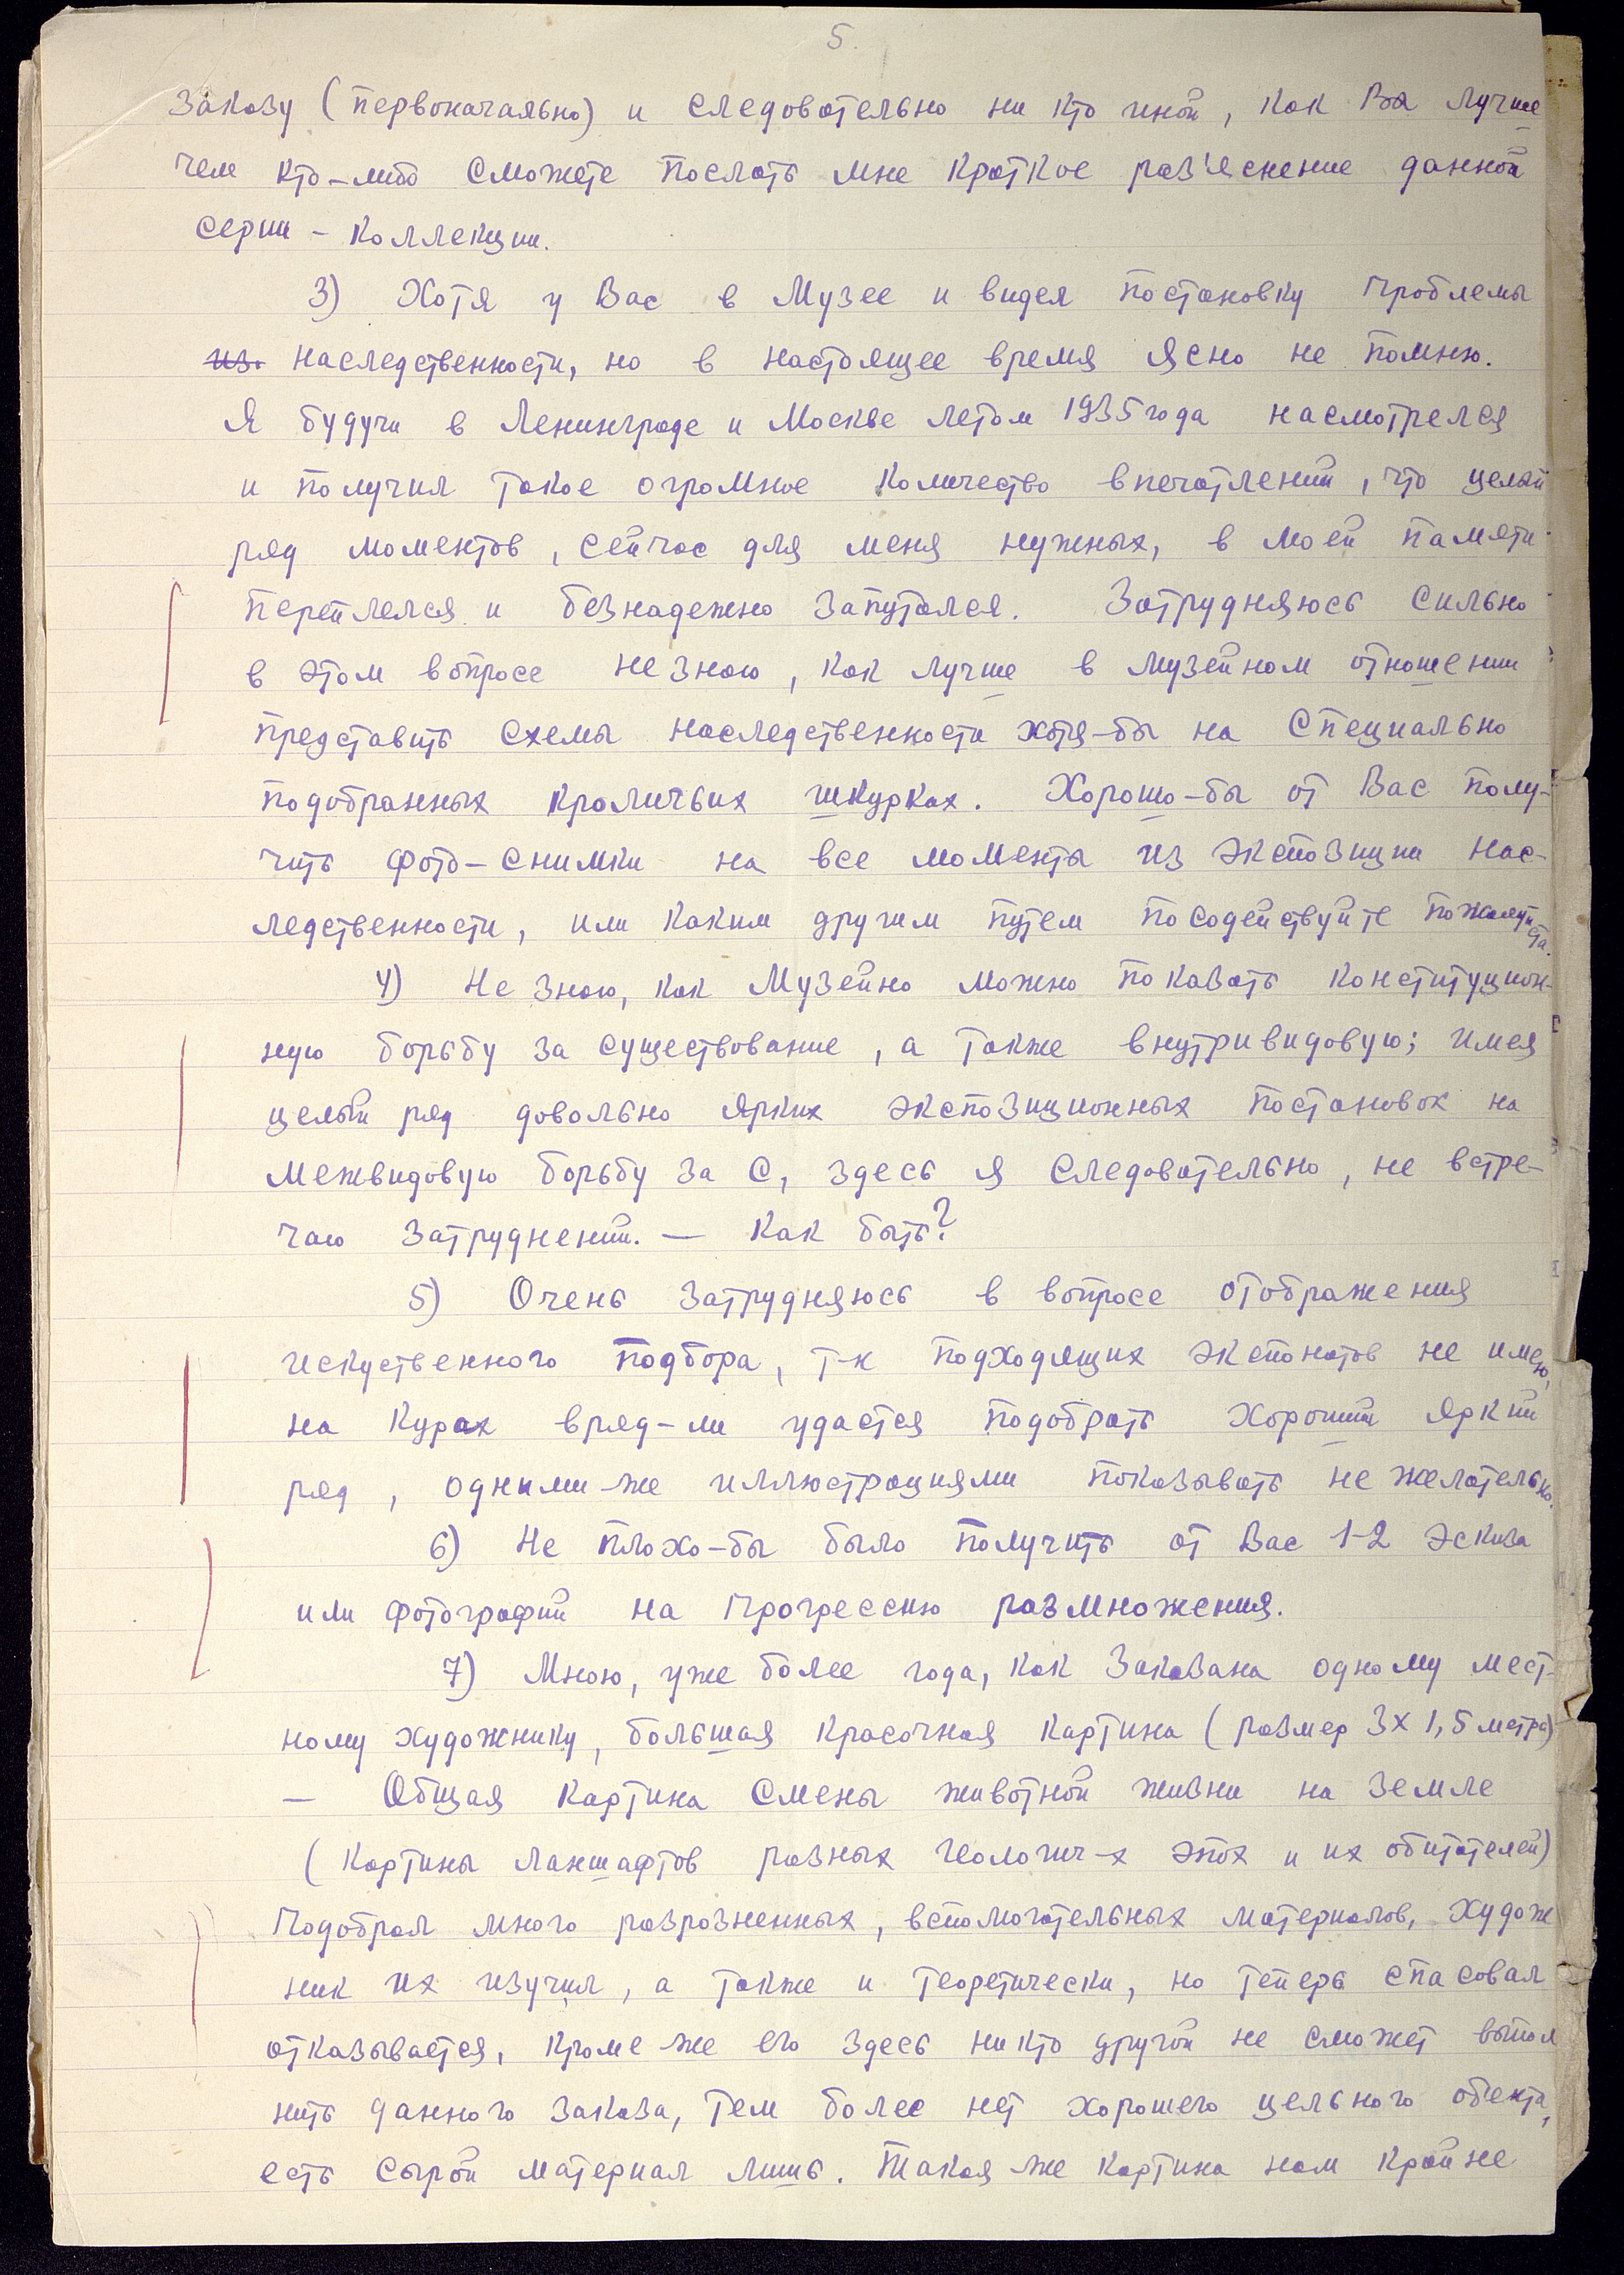 5.
заказу (первоначально) и следовательно ни кто иной, как Вы лучше
чем кто-либо сможете послать мне краткое раз'яснение данной
серии - коллекции.
3) Хотя у Вас в Музее и видел постановку проблемы
из. наследственности, но в настоящее время ясно не помню.
Я будучи в Ленинграде и Москве летом 1935 года насмотрелся
и получил такое огромное количество впечатлений, что целый
ряд моментов, сейчас для меня нужных, в моей памяти
переплелся и безнадежно запутался. Затрудняюсь сильно
в этом вопросе не знаю, как лучше в музейном отношении
представить схемы наследственности хотя-бы на специально
подобранных кроличьих шкурках. Хорошо-бы от Вас полу-
чить фото-снимки на все моменты из экспозиции нас-
ледственности, или каким другим путем посодействуйте пожалуйста.
4) Не знаю, как Музейно можно показать конституцион-
ную борьбу за существование, а также внутривидовую; имея
целый ряд довольно ярких экспозиционных постановок на
межвидовую борьбу за С, здесь я следовательно, не встре-
чаю затруднений. — Как быть?
5) Очень затрудняюсь в вопросе отображения
искуственного подбора, т-к подходящих экспонатов не имею,
на курах вряд-ли удастся подобрать хороший яркий
ряд, одними-же иллюстрациями показывать не желательно.
6) Не плохо-бы было получить от Вас 1-2 эскиза
или фотографий на Прогрессию размножения.
7) Мною, уже более года, как заказана одному мест-
ному художнику, большая красочная картина (размер 3 х 1,5 метра)
— Общая картина смены животной жизни на земле
(картины ланшафтов разных геологич-х эпох и их обитателей)
Подобрал много разрозненных, вспомогательных материалов, худож
ник их изучил, а также и теоретически, но теперь спасовал
отказывается, кроме-же его здесь никто другой не сможет выпол
нить данного заказа, тем более нет хорошего цельного об'екта,
есть сырой материал лишь. Такая-же картина нам крайне